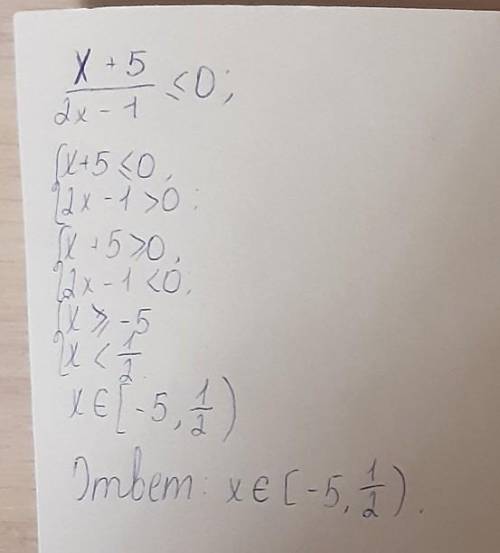 x + 5 / 2x - 1 ≤ 0;
{ x + 5 ≤ 0,
{ 2x - 1 > 0;
{ x + 5 ≥ 0,
{ 2x - 1 < 0;
{ x ≥ -5
{ x < 1/2.
x ∈ [-5, 1/2)
Ответ: x ∈ [-5, 1/2).